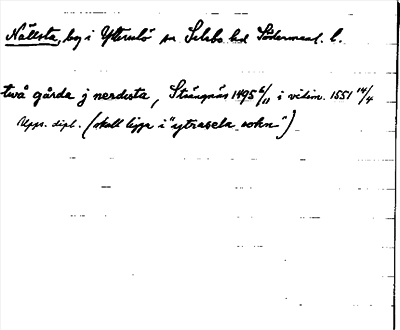 Nällsta, by i Ytterselö sn Selebo hd Södermanl. l.
två gårda j nerdista, Strängnäs 1495 6/11 i vidim. 1551 14/4
Upps. dipl. (skall ligga i "ytrasela sokn")